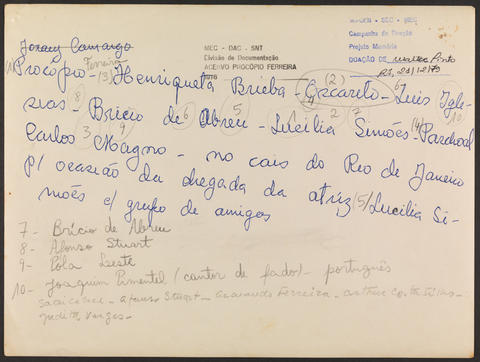 Joracy Camargo
MEC - DAC - SNT
Divisão de Documentação
ACERVO PROCÓPIO FERREIRA
INACEN - SEC - MEC
Campanha de Doação
Projeto Memória
DOAÇÃO DE Walter Pinto
RJ, 23/12/
Ferreira
(1) Procópio - (3) Henriqueta Brieba - (2) Oscarito - 6 Luis Igle-
sias - 8 Brício de 6 Abreu - 5 Lucilia Simões - (4) Paschoal 10
Carlos 3 Magno - 9 no cais do Rio de Janeiro 1 2 7
p/ ocasião da chegada da atriz (5) Lucilia Si-
mões c/ grupo de amigos
7 - Brício de Abreu
8 - Afonso Stuart
9 - Pola Leste
10 - Joaquim Pimentel (cantor de fados) - português
Afonso Stuart - Ferreira - Arthur Costa Filho -
Judith Vargas -